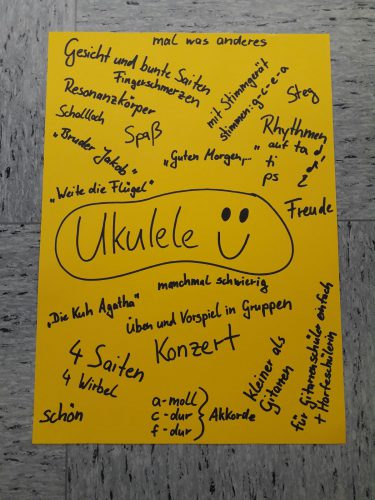 mal was anderes
Gesicht und bunte Saiten
Fingerschmerzen
Resonanzkörper
Schalloch
Spaß
mit Stimmgerät
stimmen: g-c-e-a
Steg
Rhythmen
auf ta
ti
ps
"Bruder Jakob"
"Guten Morgen,..."
"Weite die Flügel"
Freude
Ukulele
manchmal schwierig
"Die Kuh Agatha"
Üben und Vorspiel in Gruppen
Konzert
4 Saiten
4 Wirbel
kleiner als
Gitarren
für Gitarrenschüler einfach
+ Harfeschülerin
schön
a-moll
c-dur
f-dur
Akkorde